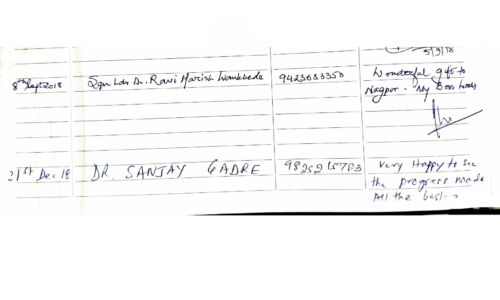 5/9/18
8th Sept 2018 Sqn Ldr Dr. Ravi Harish Wankhede 9423683350 Wonderful gift to
Nagpur. My Best
21st Dec 18 DR. SANJAY GADRE 9825215783 Very Happy to see
the progress made
All the best.